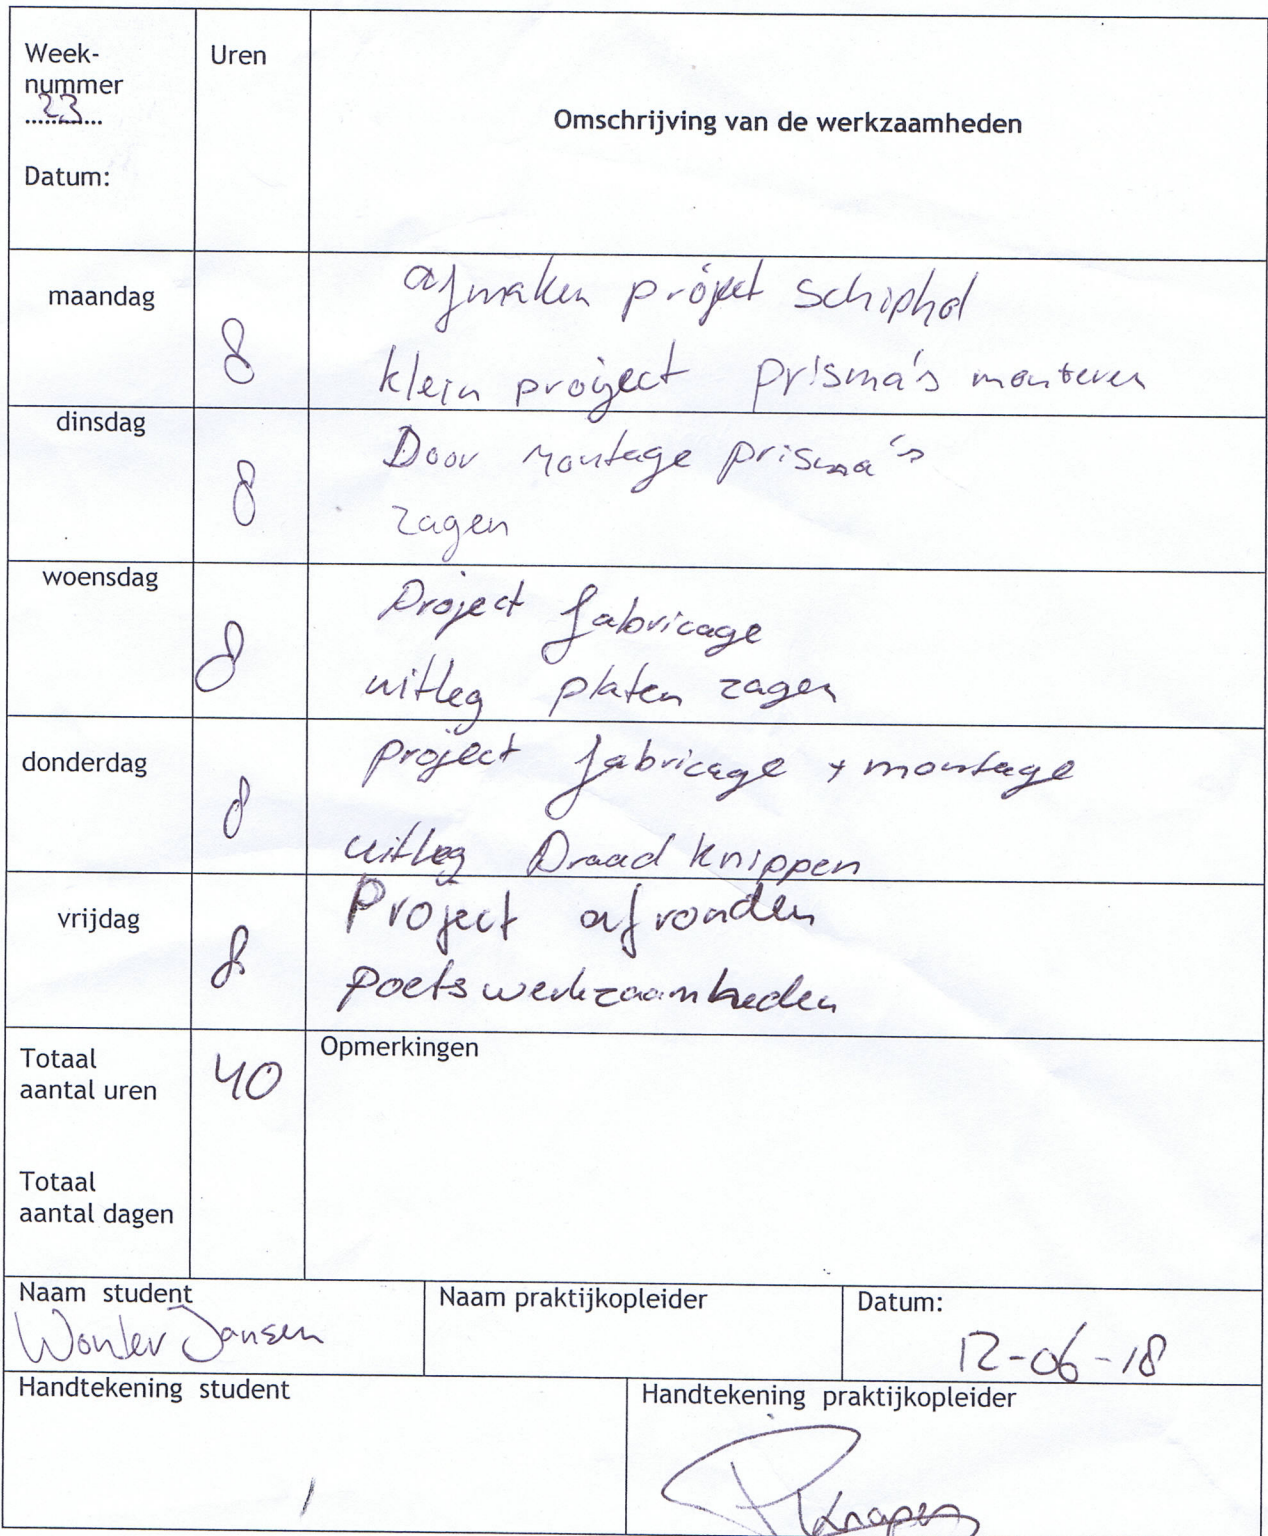 Week-
nummer
23
Datum:
Uren
Omschrijving van de werkzaamheden
maandag
8
afmaken project schiphol
klein project prisma's monteren
dinsdag
8
Door montage prisma's
zagen
woensdag
8
Project fabricage
uitleg platen zagen
donderdag
8
project fabricage + montage
uitleg Draad knippen
vrijdag
8
Project afronden
poetswerkzaamheden
Totaal
aantal uren
40
Opmerkingen
Totaal
aantal dagen
Naam student
Wouter Jansen
Naam praktijkopleider
Datum:
12-06-18
Handtekening student
Handtekening praktijkopleider